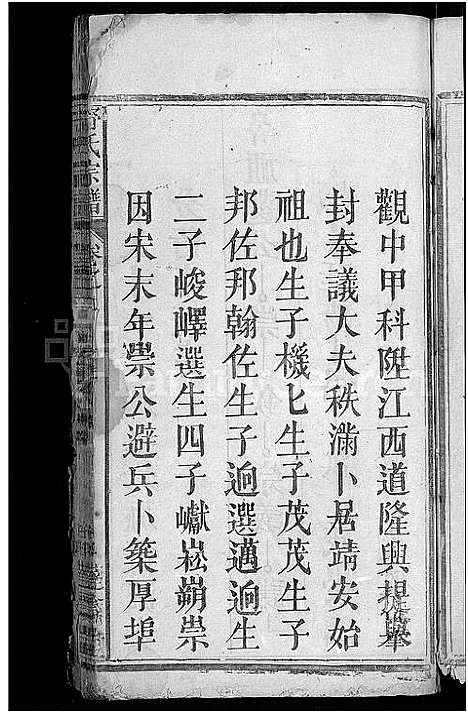 觀中甲科陞江西道隆興提舉
封奉議大夫秩滿卜居靖安始
祖也生子機匕生子茂茂生子
邦佐邦翰佐生子逈選邁逈生
二子峻嶧選生四子巘崧蒴崇
因宋末年崇公避兵卜築厚埠
氏宗譜